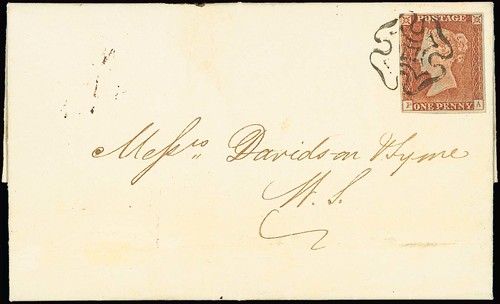 POSTAGE
ONE PENNY
P A
Messrs Davidson & Syme
W. S.